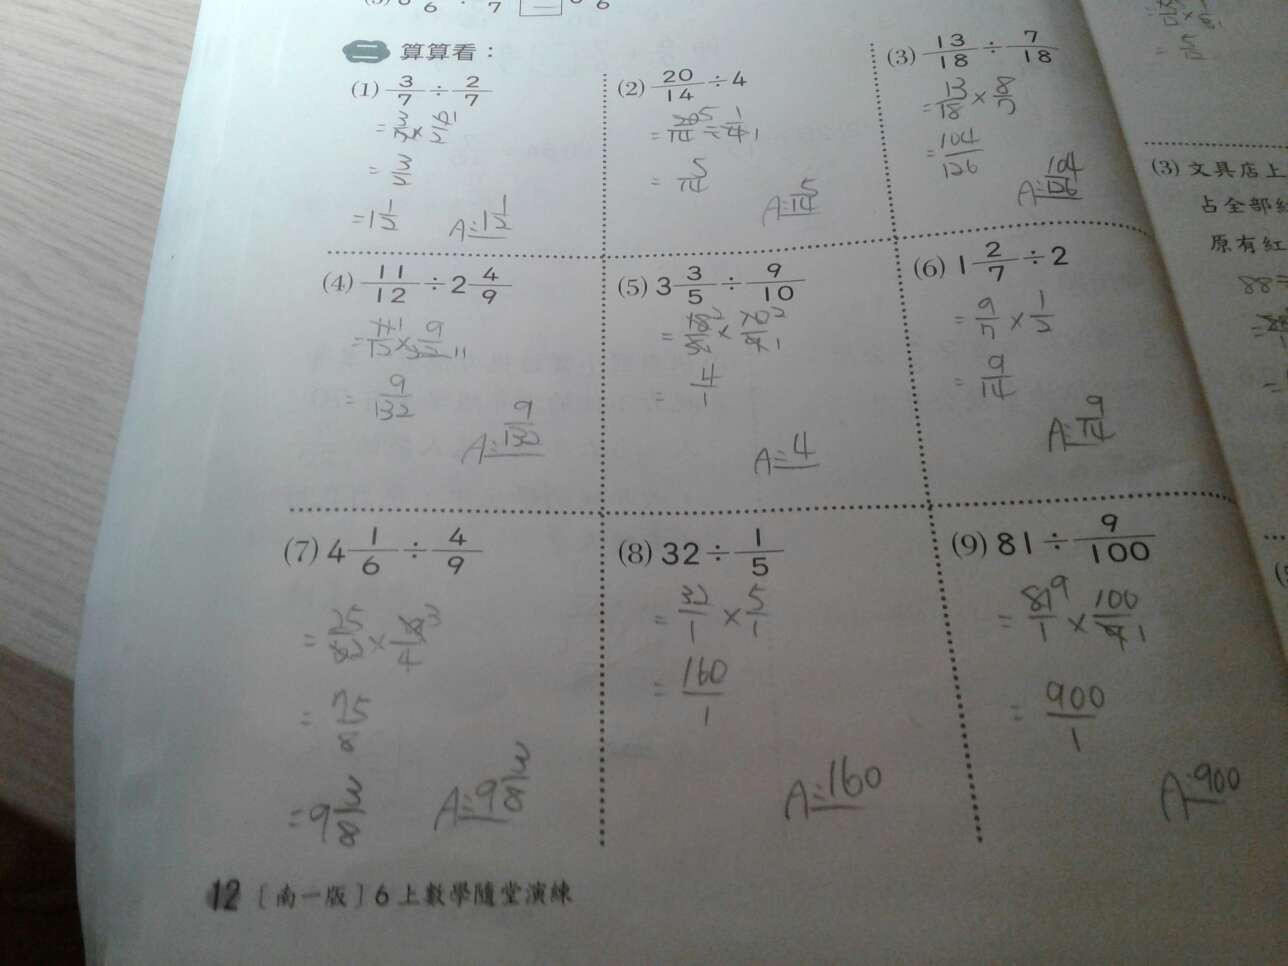 二 算算看：
(1) 3/7 ÷ 2/7
= 3/7 × 7/2 1
= 3/2
= 1 1/2
A: 1 1/2
(2) 20/14 ÷ 4
= 20/14 5 ÷ 1/4 1
= 5/14
A: 5/14
(3) 13/18 ÷ 7/18
= 13/18 × 8/7
= 104/126
A: 104/126
(4) 11/12 ÷ 2 4/9
= 11/12 1 × 9/22 11
= 9/132
A: 9/132
(5) 3 3/5 ÷ 9/10
= 18/5 2 × 10/9 2 1
= 4/1
A: 4
(6) 1 2/7 ÷ 2
= 9/7 × 1/2
= 9/14
A: 9/14
(7) 4 1/6 ÷ 4/9
= 25/ × 3/4
= 75/8
= 9 3/8
A: 9 3/8
(8) 32 ÷ 1/5
= 32/1 × 5/1
= 160/1
A: 160
(9) 81 ÷ 9/100
= 81/1 9 × 100/9 1
= 900/1
A: 900
(3) 文具店上
占全部紅
原有紅
88÷
12〔南一版〕6上數學隨堂演練